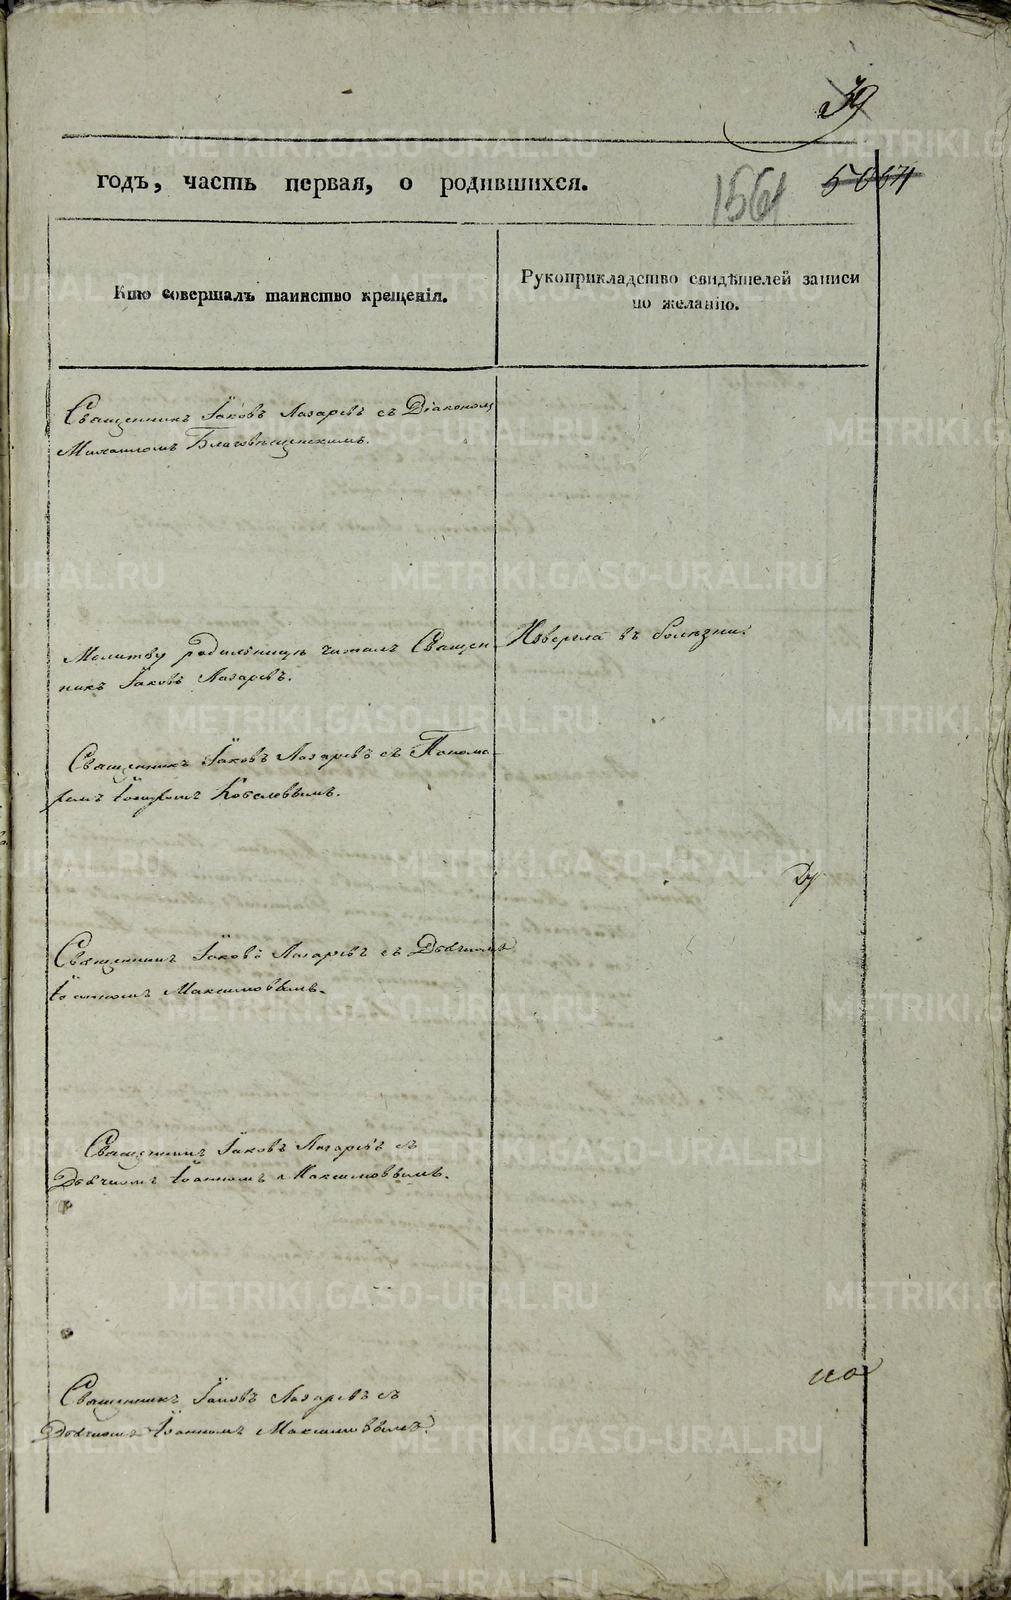 39
годъ, часть первая, о родившихся.
156
5064
Кто совершалъ таинство крещенія.
Рукоприкладство свидѣтелей записи
по желанію.
Священникъ Іаковъ Лазаревъ съ Діакономъ
Михаиломъ Благовѣщенскимъ.
Молитву родильницѣ читалъ Священ-
никъ Іаковъ Лазаревъ.
въ болѣзни.
Священникъ Іаковъ Лазаревъ съ Понома-
ремъ
Священникъ Іаковъ Лазаревъ съ Дьячкомъ
Іоанномъ Максимовымъ.
Священникъ Іаковъ Лазаревъ съ
Дьячкомъ Іоанномъ Максимовымъ.
Священникъ Іаковъ Лазаревъ съ
Дьячкомъ Іоанномъ Максимовымъ.
METRIKI.GASO-URAL.RU